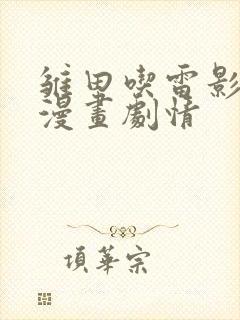 雏田喫雷影
漫畫劇情
項華宗